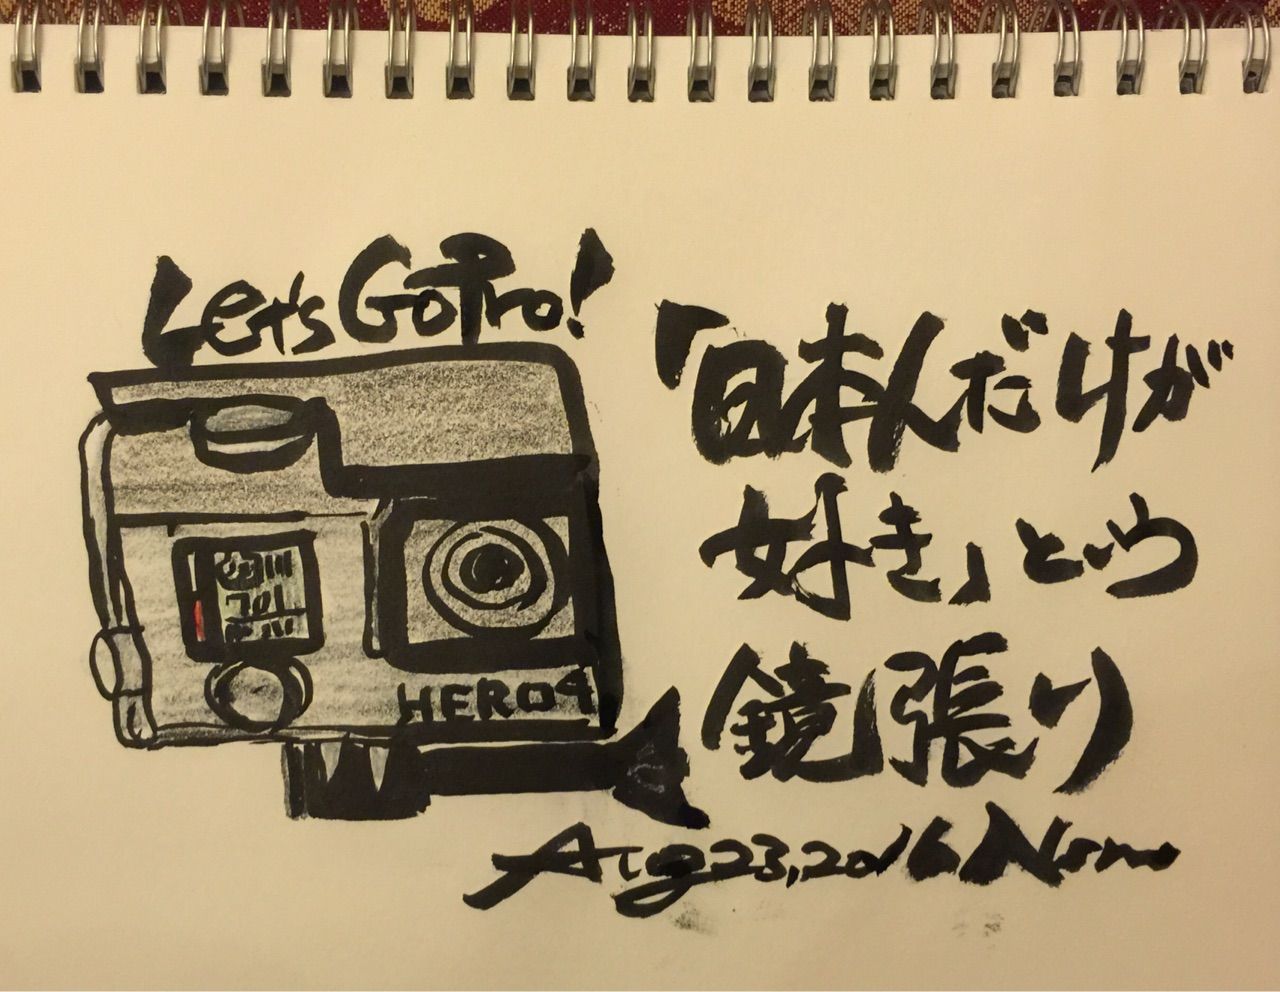 Let's GoPro!
「日本人だけが
好き」という
鏡張り
HERO4
Aug 23, 2016